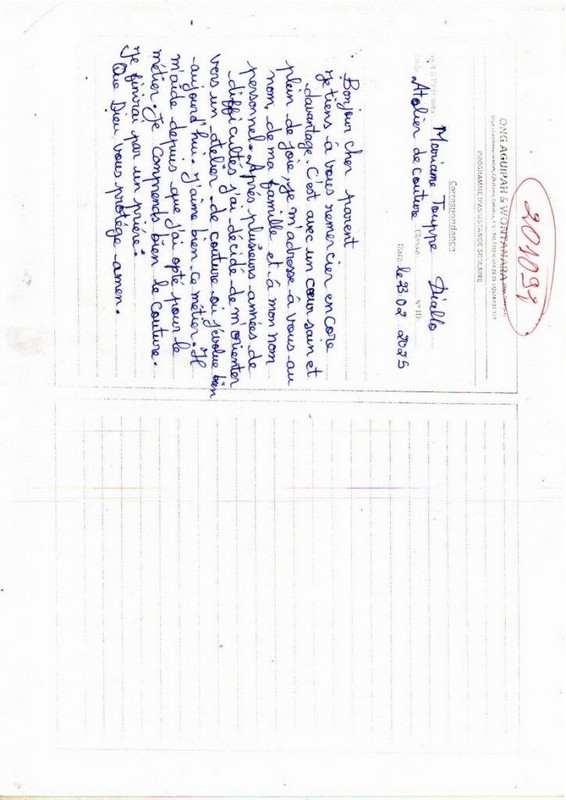 201091
ONG AGUIPAH & WONTANARA
PROGRAMME D'ASSISTANCE SCOLAIRE
Correspondance
Mariame Touppe Diallo
N° ID:
Atelier de couture
Date: le 13 02 2025
Bonjour cher parent
Je tiens à vous remercier encore
davantage. C'est avec un cœur sain et
plein de joie, je m'adresse à vous au
nom de ma famille et à mon nom
personnel. Après plusieurs années de
difficultés j'ai décidé de m'orienter
vers un atelier de couture où j'évolue bien
aujourd'hui. J'aime bien ce métier. Il
m'aide depuis que j'ai opté pour le
métier. Je comprends bien la couture.
Je finirai par un prière:
Que Dieu vous protège-amen.